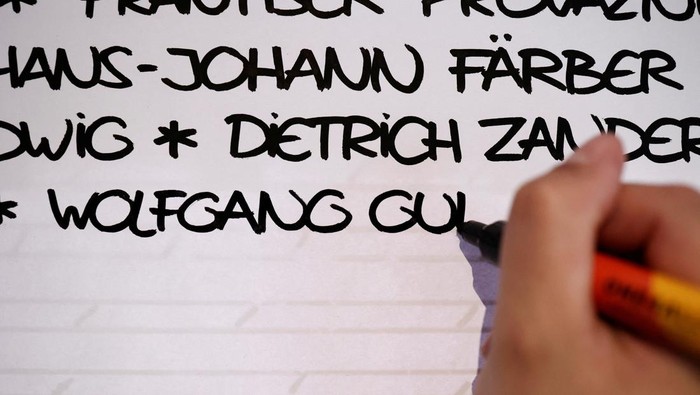 * FRANTIŠEK PROVAZNI
HANS-JOHANN FÄRBER
DWIG * DIETRICH ZANDER
* WOLFGANG GUL